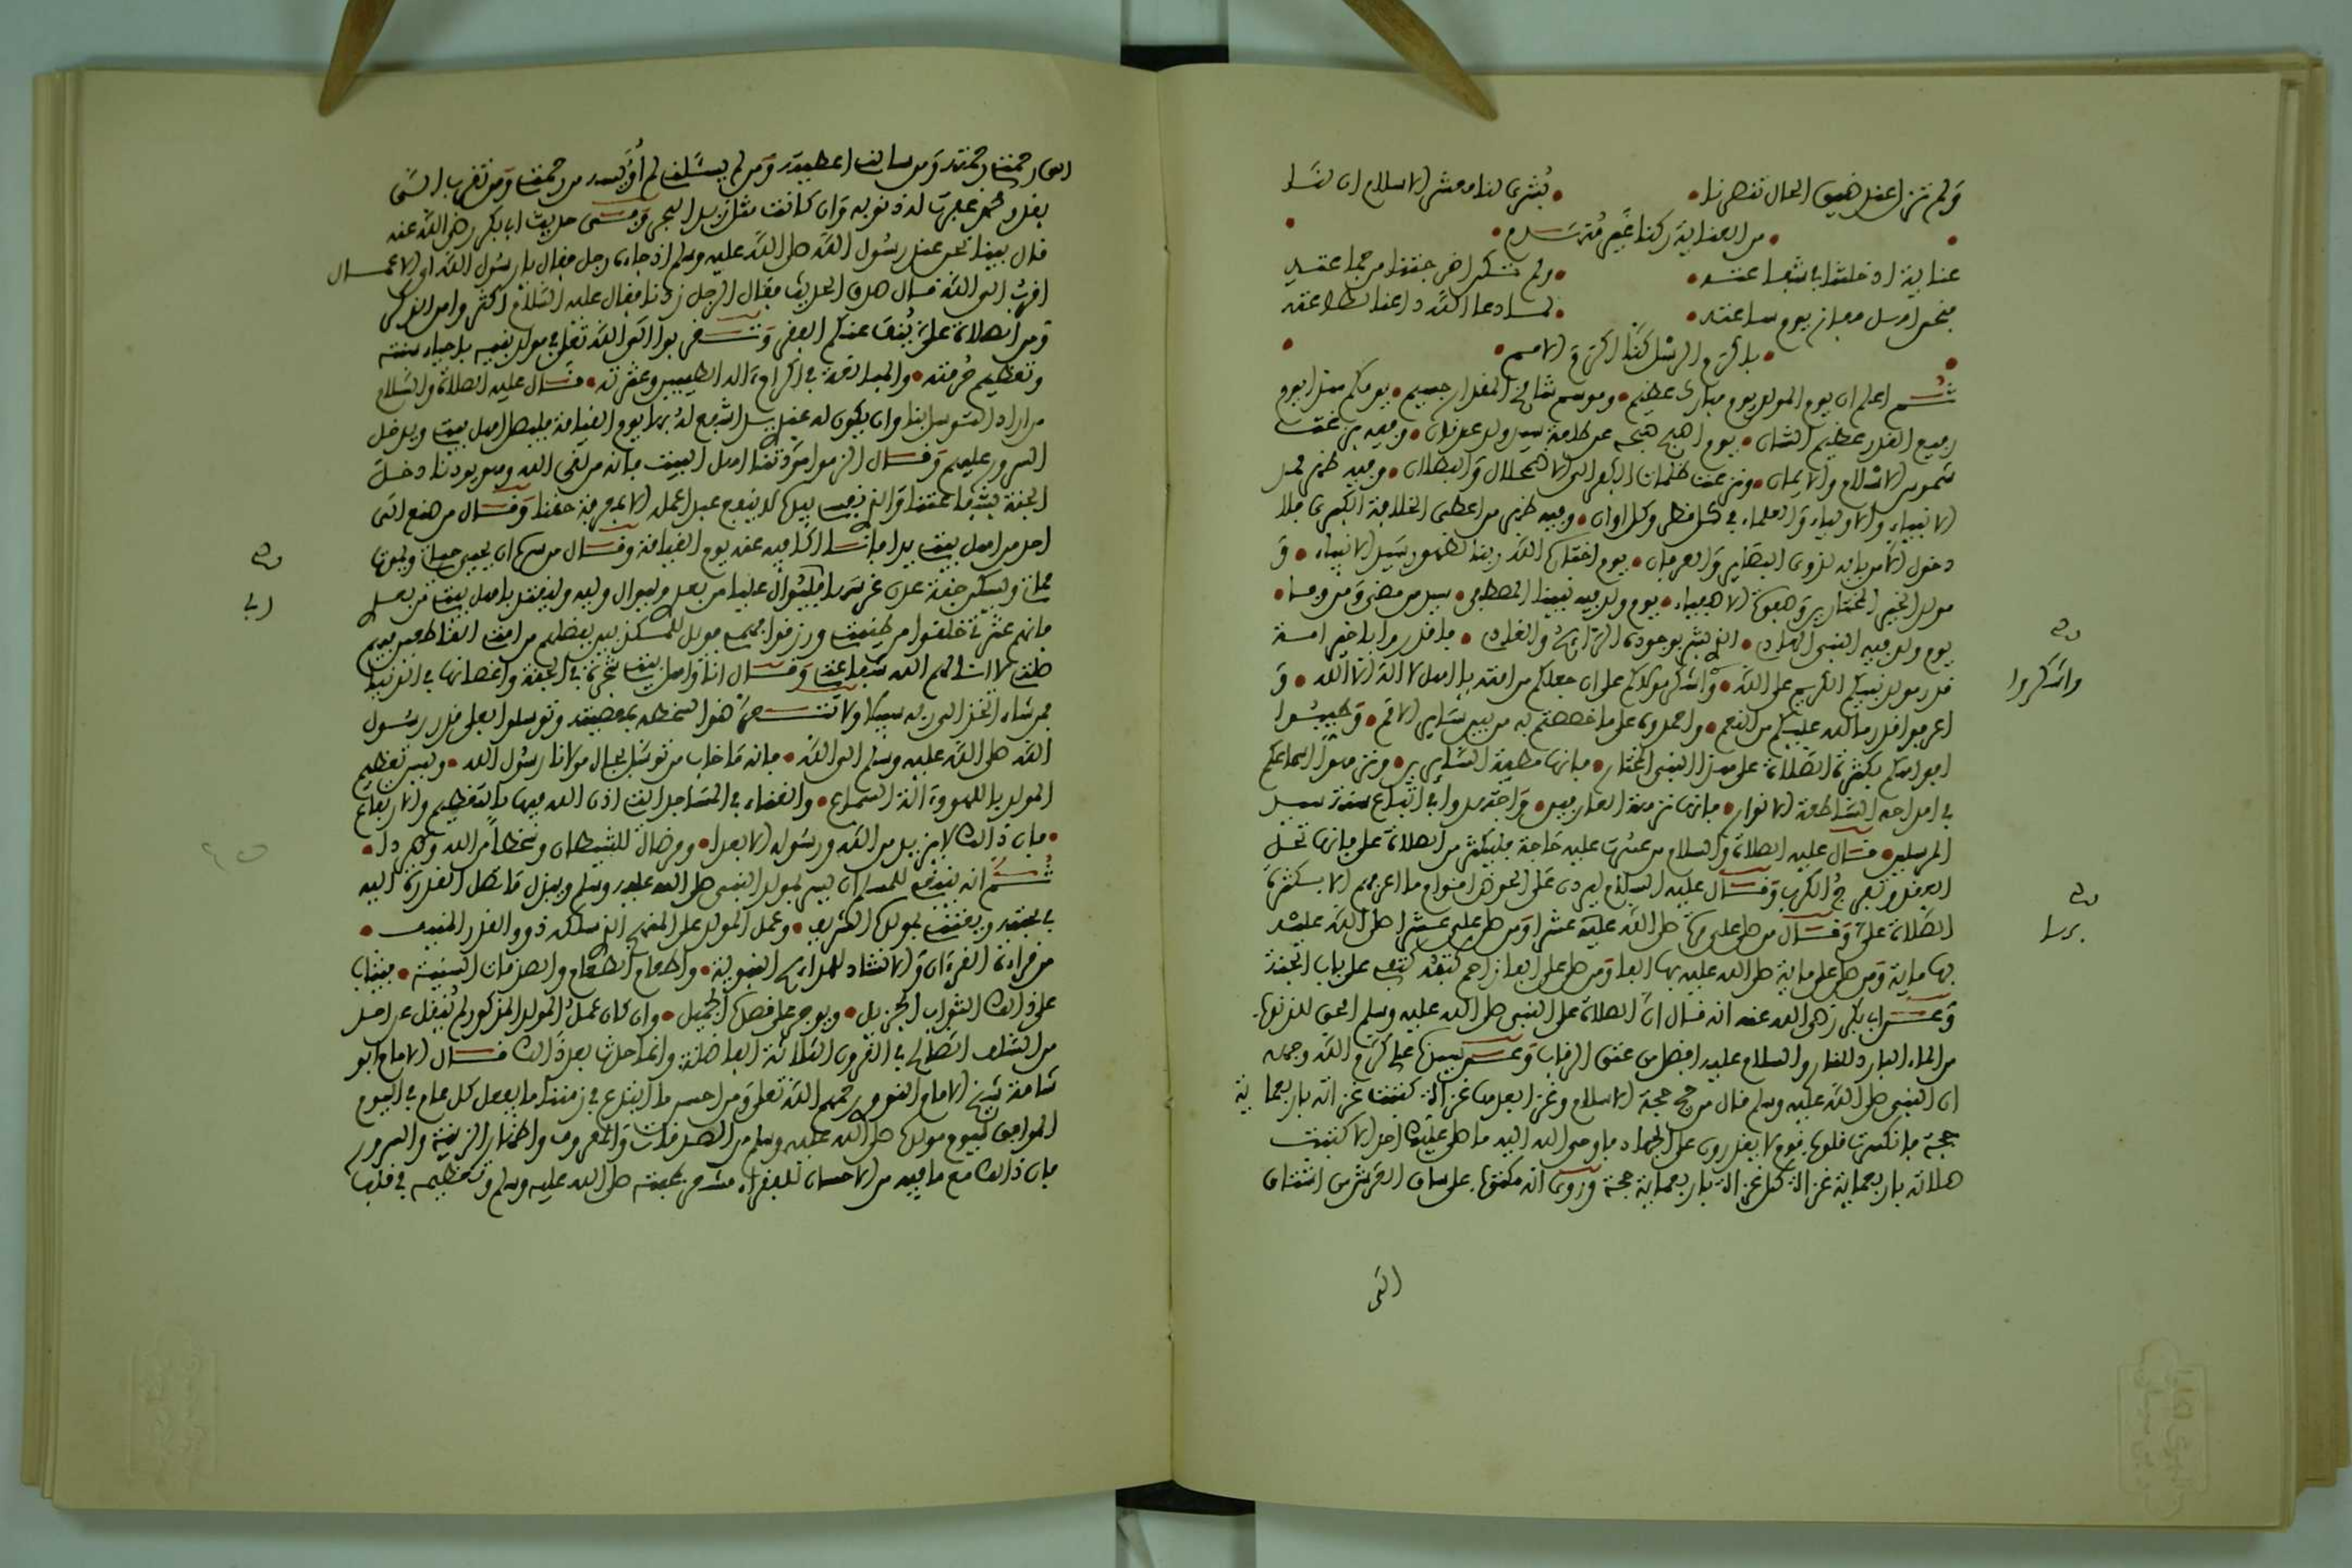 ولم تزل عند ضيق الحال تنصرنا • • بشرى لنا معشر الاسلام ان لنا
• من العناية ركنا غير منهدم •
عناية ادخلتنا في شفاعته • ولم تكن اخرجتنا من جماعته
فنحن اهل مفاز يوم ساعته • • لما دعا الله داعينا لطاعته
• باكرم الرسل كنا اكرم الامم •
ثم اعلم ان يوم المولد يوم مبارك عظيم • وموسم شامخ المقدار جسيم • يومكم هذا يوم
رفيع القدر عظيم الشان • يوم ابهج بهجة عن طلعة سيد ولد عدنان • وفيه بزغت
شموس الاسلام والايمان • ونزعت ظلمات الكفر الى الاضمحلال والبطلان • وفيه ظهر فضل
الانبياء والاولياء والعلماء في كل قطر وكل اوان • وفيه ظهر من اعطي الخلافة الكبرى فلا
دخول لاحد بابه لذوي البصائر والعرفان • يوم اختاره الله ربنا لظهور سيد الانبياء • و
مولد الخير المختار وصفوة الاصفياء • يوم ولد فيه نبينا المصطفى • سيد من مضى ومن وفا •
يوم ولد فيه النبي الهادي • الذي بشر بوجوده الرائح والغادي • فاقدروا يا خير امة
قدر مولد نبيكم الكريم على الله • واشكروا مولاكم على ان جعلكم من امته يا اهل لا اله الا الله • و
اعرفوا قدر ما لله عليكم من النعم • واحمدوه على ما خصصتم به من بين سائر الامم • وطيبوا
افواهكم بكثرة الصلاة على هذا النبي المختار • فانها مطية السائرين • ونزهوا اسماعكم
في امداحه الساطعة الانوار • فانها نزهة العارفين • واجتهدوا في اتباع سنة سيد
المرسلين • قال عليه الصلاة والسلام من عسرت عليه حاجة فليكثر من الصلاة علي فانها تحل
العقد وتفرج الكرب وقال عليه السلام ليردن على الحوض اقوام ما اعرفهم الا بكثرة
الصلاة علي وقال من صلى علي مرة صلى الله عليه عشرا ومن صلى علي عشرا صلى الله عليه
بها ماية ومن صلى علي ماية صلى الله عليه بها الفا ومن صلى علي الفا زاحم كتفه كتفي على باب الجنة
وعن ابي بكر رضي الله عنه انه قال ان الصلاة على النبي صلى الله عليه وسلم امحق للذنوب
من الماء البارد للنار والسلام عليه افضل من عتق الرقاب وعن سيدنا علي كرم الله وجهه
ان النبي صلى الله عليه وسلم قال من حج حجة الاسلام وغزا بعدها غزاة كتبت غزاته باربعماية
حجة فانكسرت قلوب قوم لا يقدرون على الجهاد فاوحى الله اليه ما صلى عليك احد الا كتبت
صلاته باربعماية غزاة كل غزاة باربعماية حجة وروي انه مكتوب على ساق العرش من اشتاق
الى
واشكروا
الى رحمتي رحمته ومن سالني اعطيته ومن لم يسئلني لم اويسه من رحمتي ومن تقرب الي
بقدر محمد غفرت له ذنوبه وان كانت مثل زبد البحر وفي حديث ابي بكر رضي الله عنه
قال بينما نحن عند رسول الله صلى الله عليه وسلم اذ جاءه رجل فقال يا رسول الله اي الاعمال
اقرب الى الله قال صدق الحديث فقال الرجل زدنا فقال عليه السلام اكثروا من الذكر
ومن الصلاة علي ينف عنكم الفقر وتقربوا الى الله تعالى في مولد نبيه باحياء سنته
وتعظيم حرمته • والمبادرة في اكرام ءاله الطيبين وعترته • قال عليه الصلاة والسلام
من اراد التوسل بنا وان يكون له عندي يد اشفع له بها يوم القيامة فليصل اهل بيتي ويدخل
السرور عليهم وقال الزموا مودتنا اهل البيت فانه من لقي الله وهو يودنا دخل
الجنة بشفاعتنا والذي نفسي بيده لا ينفع عبدا عمله الا بمعرفة حقنا وقال من صنع الى
احد من اهل بيتي يدا فانا اكافيه عنه يوم القيامة وقال من سره ان يحيى حياتي ويموت
مماتي ويسكن جنة عدن غرسها ربي فليوال عليا من بعدي وليوال وليه وليقتد باهل بيتي من بعدي
فانهم عترتي خلقوا من طينتي ورزقوا فهمي فويل للمكذبين بفضلهم من امتي القاطعين فيهم
صلتي لا انالهم الله شفاعتي وقال انا واهل بيتي شجرة في الجنة واغصانها في الدنيا
فمن شاء اتخذ الى ربه سبيلا ولا تتعرضوا لسخطه بمعصيته وتوسلوا بعلي قدر رسول
الله صلى الله عليه وسلم الى الله • فانه ما خاب من توسل بجاه مولانا رسول الله • وليس تعظيم
المولد باللهو وءالة السماع • والغناء في المساجد التي اذن الله فيها بالتعظيم والارتفاع
• فان ذالك لا يزيد من الله ورسوله الا بعدا • ورضا للشيطان وسخطا من الله وطردا •
ثم انه ينبغي للمسلم ان يسر بمولد النبي صلى الله عليه وسلم ويبذل ما تصل القدرة اليه
في محبته ويعتني بمولده الشريف • وعمل المولد على المنهج الذي سلكه ذوو القدر المنيف •
من قراءة القرءان والانشاد للمدائح النبوية • واطعام الطعام والصدقات السنية • يثاب
على ذالك الثواب الجزيل • ويوجر على قصده الجميل • وان كان عمل المولد المذكور لم ينقل عن احد
من السلف الصالح في القرون الثلاثة الفاضلة وانما حدث بعد ذالك قال الامام ابو
شامة شيخ الامام النووي رحمهم الله تعالى ومن احسن ما ابتدع في زمننا ما يفعل كل عام في اليوم
الموافق ليوم مولده صلى الله عليه وسلم من الصدقات والمعروف واظهار الزينة والسرور
فان ذالك مع ما فيه من الاحسان للفقراء مشعر بمحبته صلى الله عليه وسلم وتعظيمه في قلب